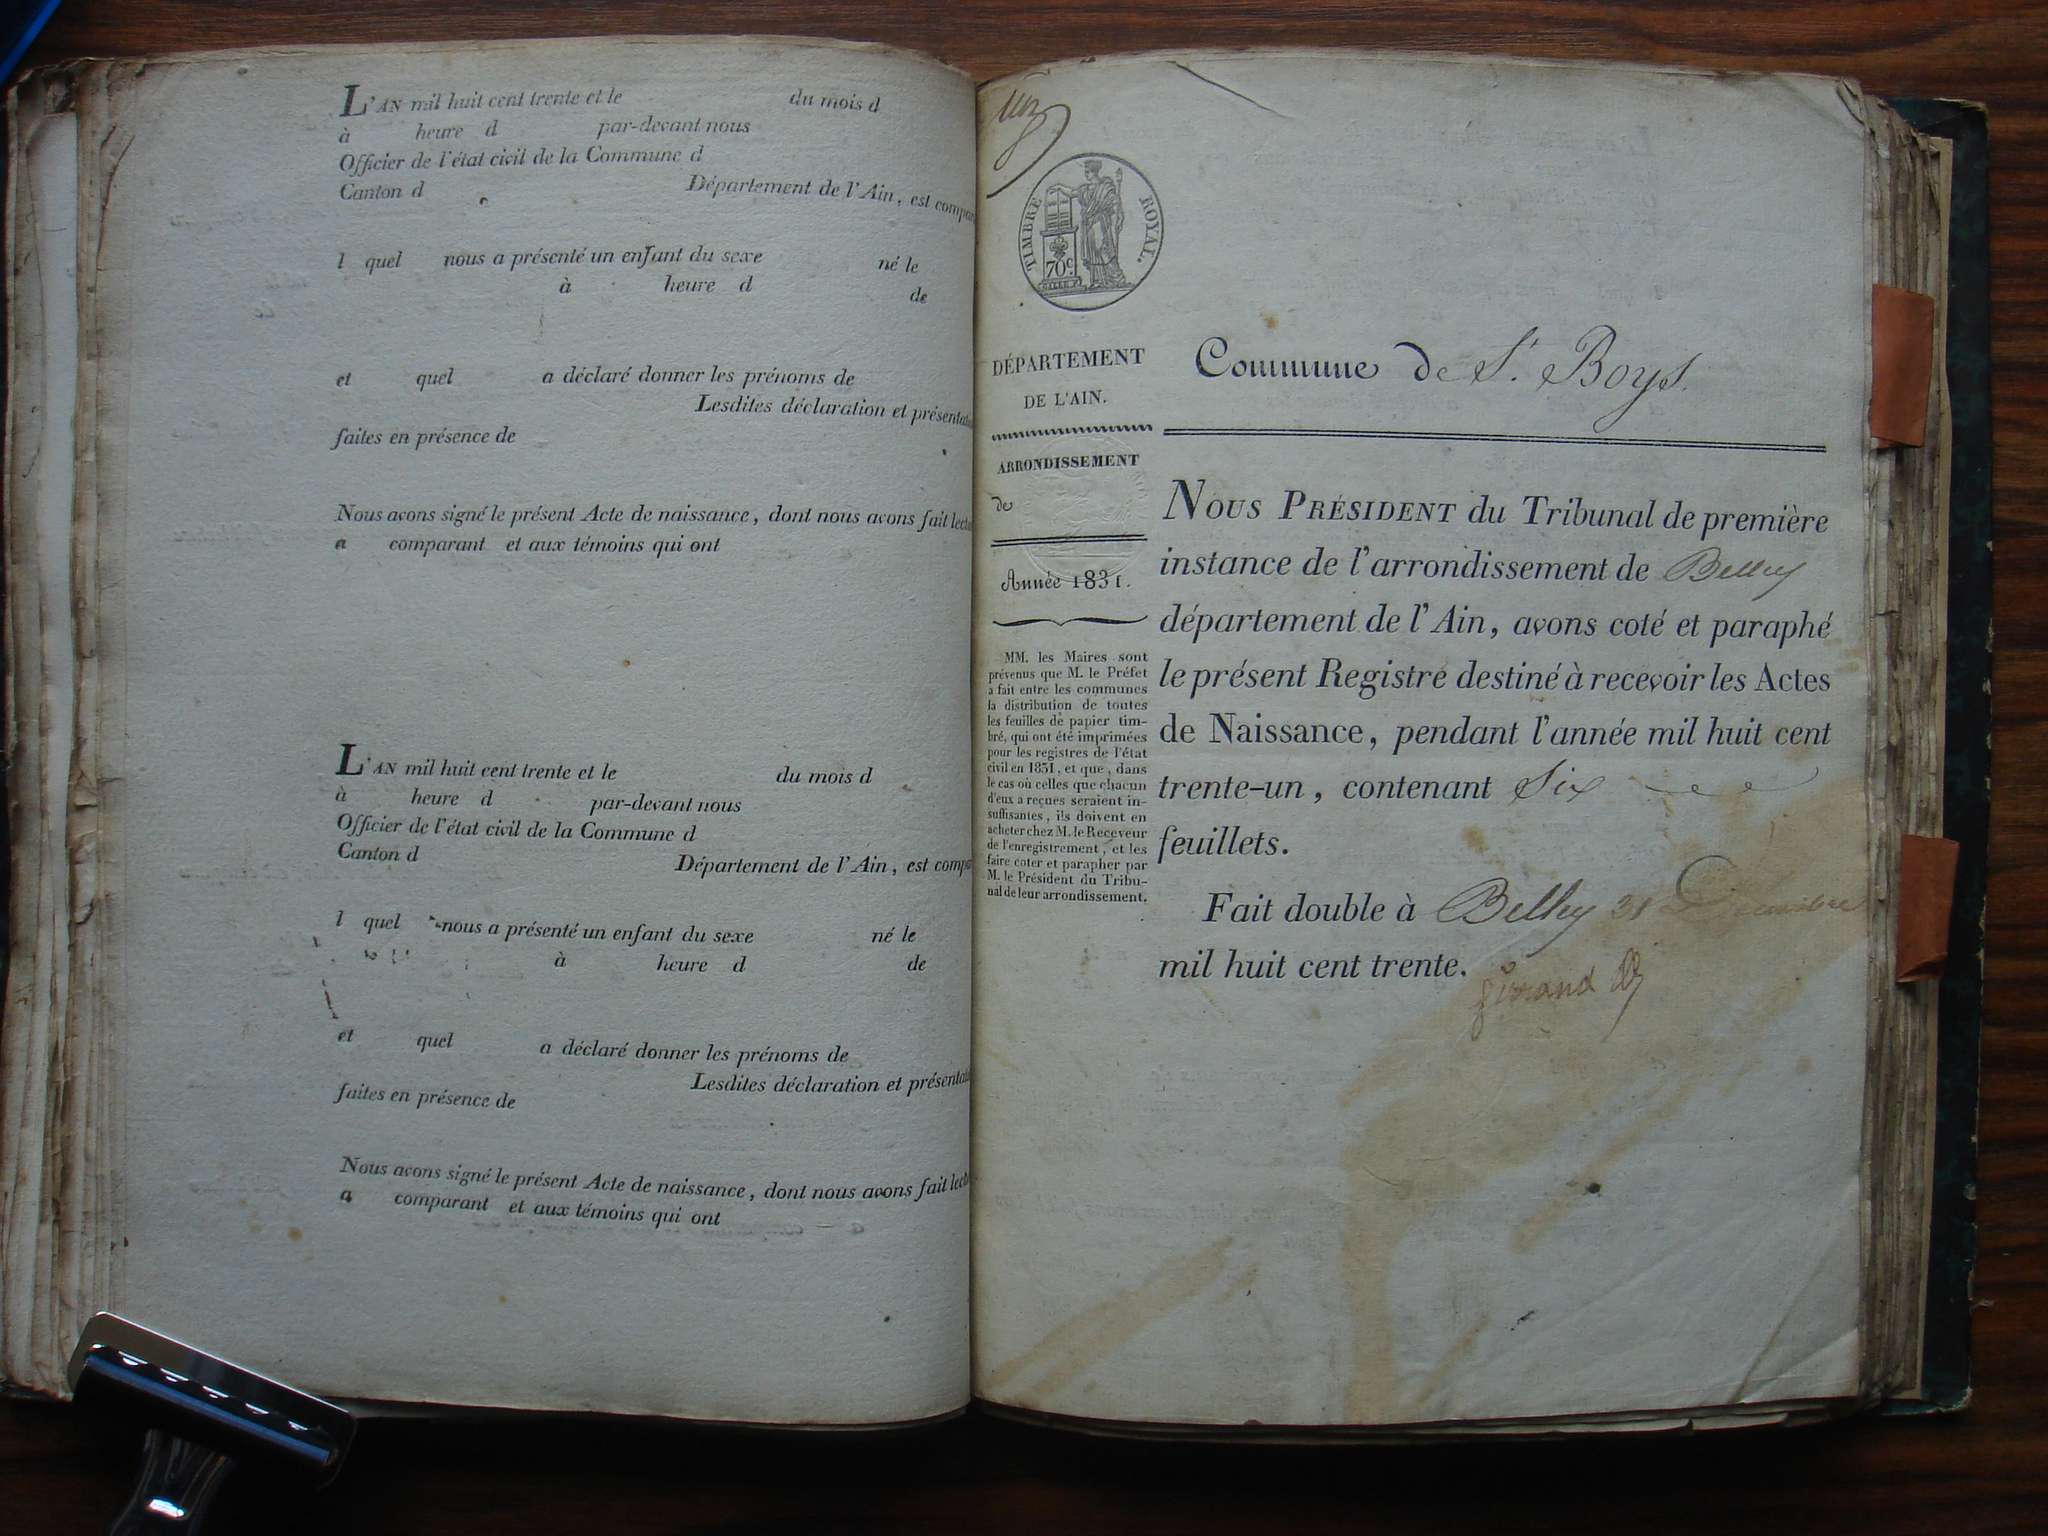 L'AN mil huit cent trente et le du mois d
à heure d par-devant nous
Officier de l'état civil de la Commune d
Canton d Département de l'Ain, est compar
l quel nous a présenté un enfant du sexe né le
à heure d de
et quel a déclaré donner les prénoms de
Lesdites déclaration et présentati
faites en présence de
Nous avons signé le présent Acte de naissance, dont nous avons fait lectu
a comparant et aux témoins qui ont
L'AN mil huit cent trente et le du mois d
à heure d par-devant nous
Officier de l'état civil de la Commune d
Canton d Département de l'Ain, est compa
l quel nous a présenté un enfant du sexe né le
à heure d de
et quel a déclaré donner les prénoms de
Lesdites déclaration et présentati
faites en présence de
Nous avons signé le présent Acte de naissance, dont nous avons fait lectu
a comparant et aux témoins qui ont
un
TIMBRE ROYAL.
70c.
DÉPARTEMENT
DE L'AIN.
ARRONDISSEMENT
de
Année 1831.
MM. les Maires sont
prévenus que M. le Préfet
a fait entre les communes
la distribution de toutes
les feuilles de papier tim-
bré, qui ont été imprimées
pour les registres de l'état
civil en 1831, et que, dans
le cas où celles que chacun
d'eux a reçues seraient in-
suffisantes, ils doivent en
acheter chez M. le Receveur
de l'enregistrement, et les
faire coter et parapher par
M. le Président du Tribu-
nal de leur arrondissement.
Commune de St. Boys
NOUS PRÉSIDENT du Tribunal de première
instance de l'arrondissement de Belley
département de l'Ain, avons coté et paraphé
le présent Registre destiné à recevoir les Actes
de Naissance, pendant l'année mil huit cent
trente-un, contenant Six
feuillets.
Fait double à Belley 31 Décembre
mil huit cent trente.